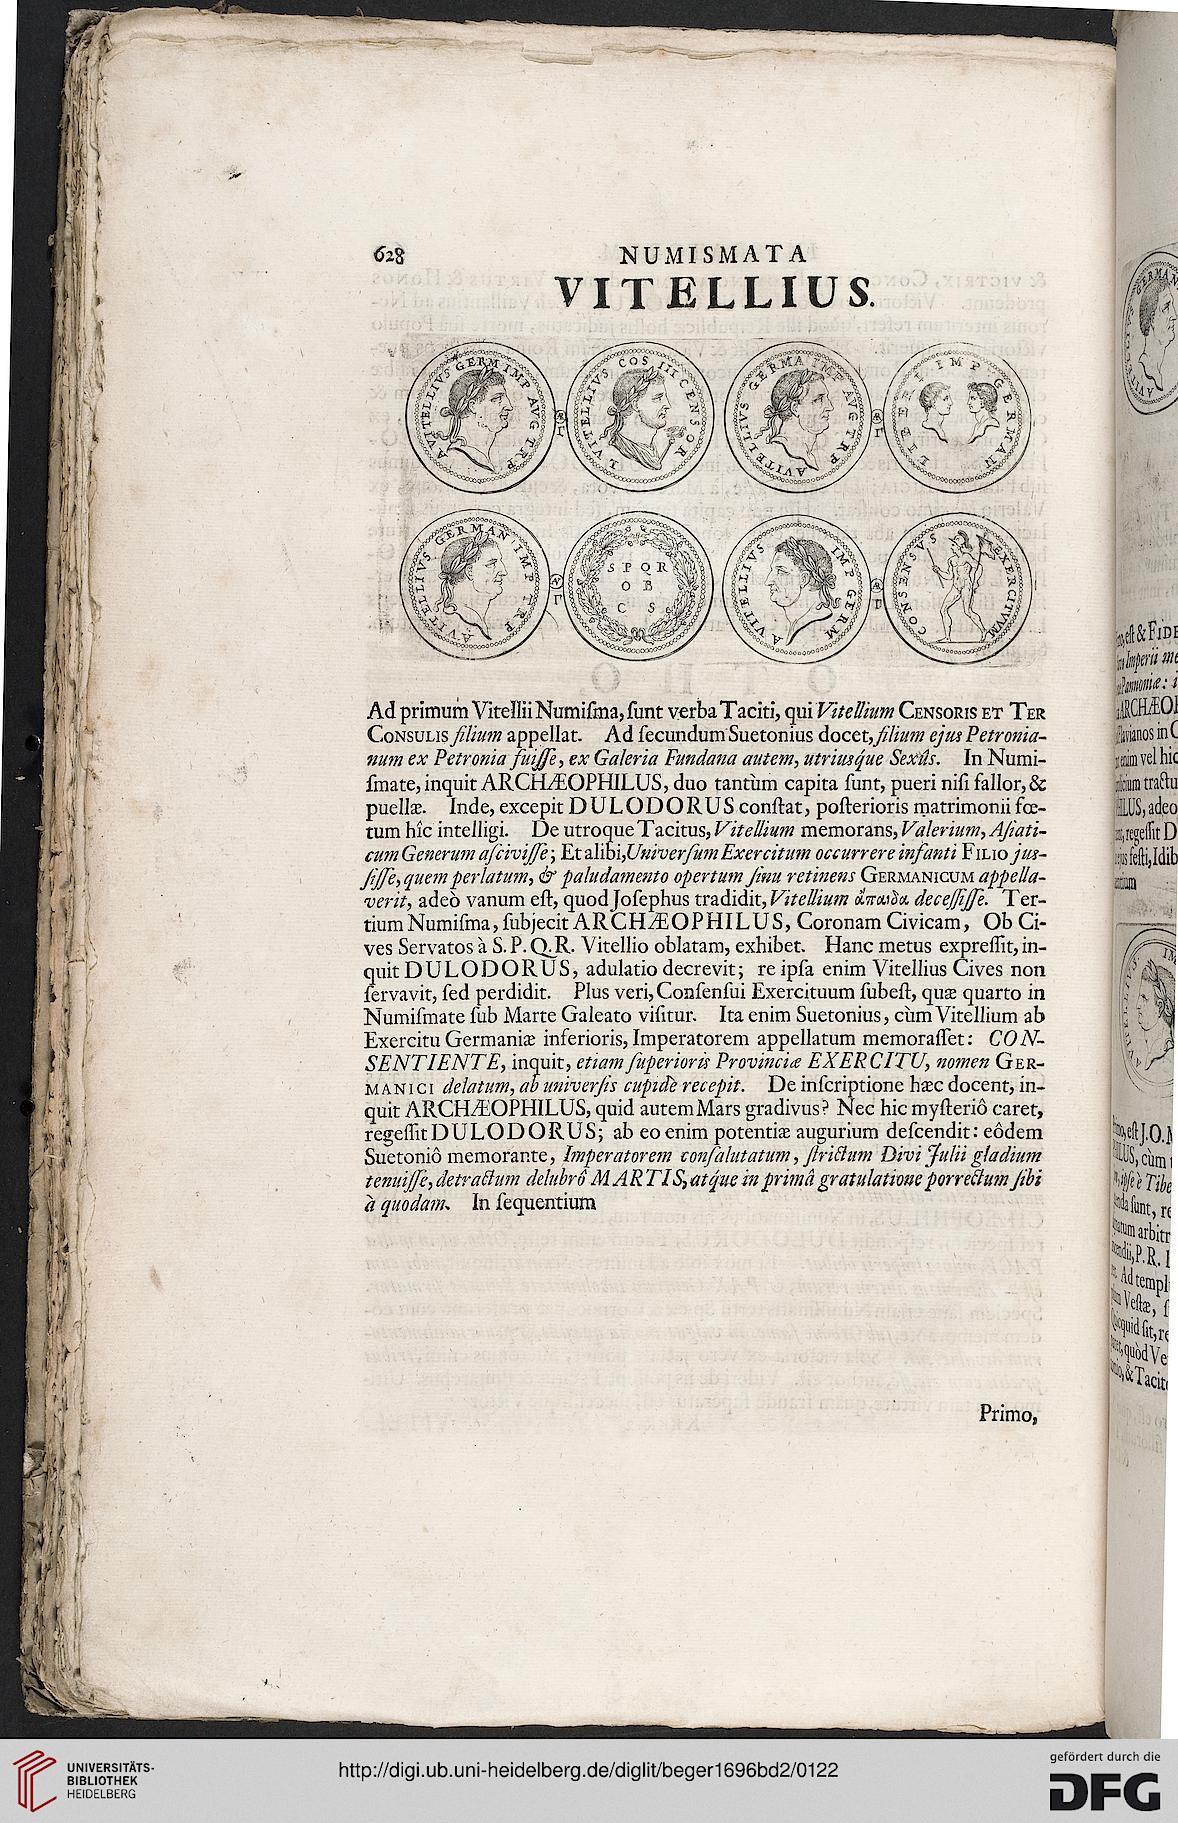 628
NUMISMATA
VITELLIUS.
A VITELLIVS GERM IMP AVG TR P
L VITELLIVS COS III CENSOR
A VITELLIVS GERMA IMP AVG TR P
LIBERI IMP GERMAN
A VITELLIVS GERMAN IMP TR P
S P Q R
O B
C S
A VITELLIVS IMP GERM
CONSENSVS EXERCITVVM
Ad primum Vitellii Numiſma, ſunt verba Taciti, qui Vitellium CENSORIS ET TER
CONSULIS filium appellat. Ad ſecundum Suetonius docet, filium ejus Petronia-
num ex Petronia fuiſſe, ex Galeria Fundana autem, utriusque Sexûs. In Numi-
ſmate, inquit ARCHÆOPHILUS, duo tantùm capita ſunt, pueri niſi fallor, &
puellæ. Inde, excepit DULODORUS conſtat, poſterioris matrimonii fœ-
tum hîc intelligi. De utroque Tacitus, Vitellium memorans, Valerium, Aſiati-
cum Generum aſciviſſe; Et alibi, Univerſum Exercitum occurrere infanti FILIO jus-
ſiſſe, quem perlatum, & paludamento opertum ſinu retinens GERMANICUM appella-
verit, adeò vanum eſt, quod Joſephus tradidit, Vitellium ἄπαιδα deceſſiſſe. Ter-
tium Numiſma, ſubjecit ARCHÆOPHILUS, Coronam Civicam, Ob Ci-
ves Servatos à S.P.Q.R. Vitellio oblatam, exhibet. Hanc metus expreſſit, in-
quit DULODORUS, adulatio decrevit; re ipſa enim Vitellius Cives non
ſervavit, ſed perdidit. Plus veri, Conſenſui Exercituum ſubeſt, quæ quarto in
Numiſmate ſub Marte Galeato viſitur. Ita enim Suetonius, cùm Vitellium ab
Exercitu Germaniæ inferioris, Imperatorem appellatum memoraſſet: CON-
SENTIENTE, inquit, etiam ſuperioris Provinciæ EXERCITU, nomen GER-
MANICI delatum, ab univerſis cupidè recepit. De inſcriptione hæc docent, in-
quit ARCHÆOPHILUS, quid autem Mars gradivus? Nec hic myſteriô caret,
regeſſit DULODORUS; ab eo enim potentiæ augurium deſcendit: eôdem
Suetoniô memorante, Imperatorem conſalutatum, ſtrictum Divi Julii gladium
tenuiſſe, detractum delubrô MARTIS, atque in primâ gratulatione porrectum ſibi
à quodam. In ſequentium
Primo,
UNIVERSITÄTS-
BIBLIOTHEK
HEIDELBERG
http://digi.ub.uni-heidelberg.de/diglit/beger1696bd2/0122
gefördert durch die
DFG